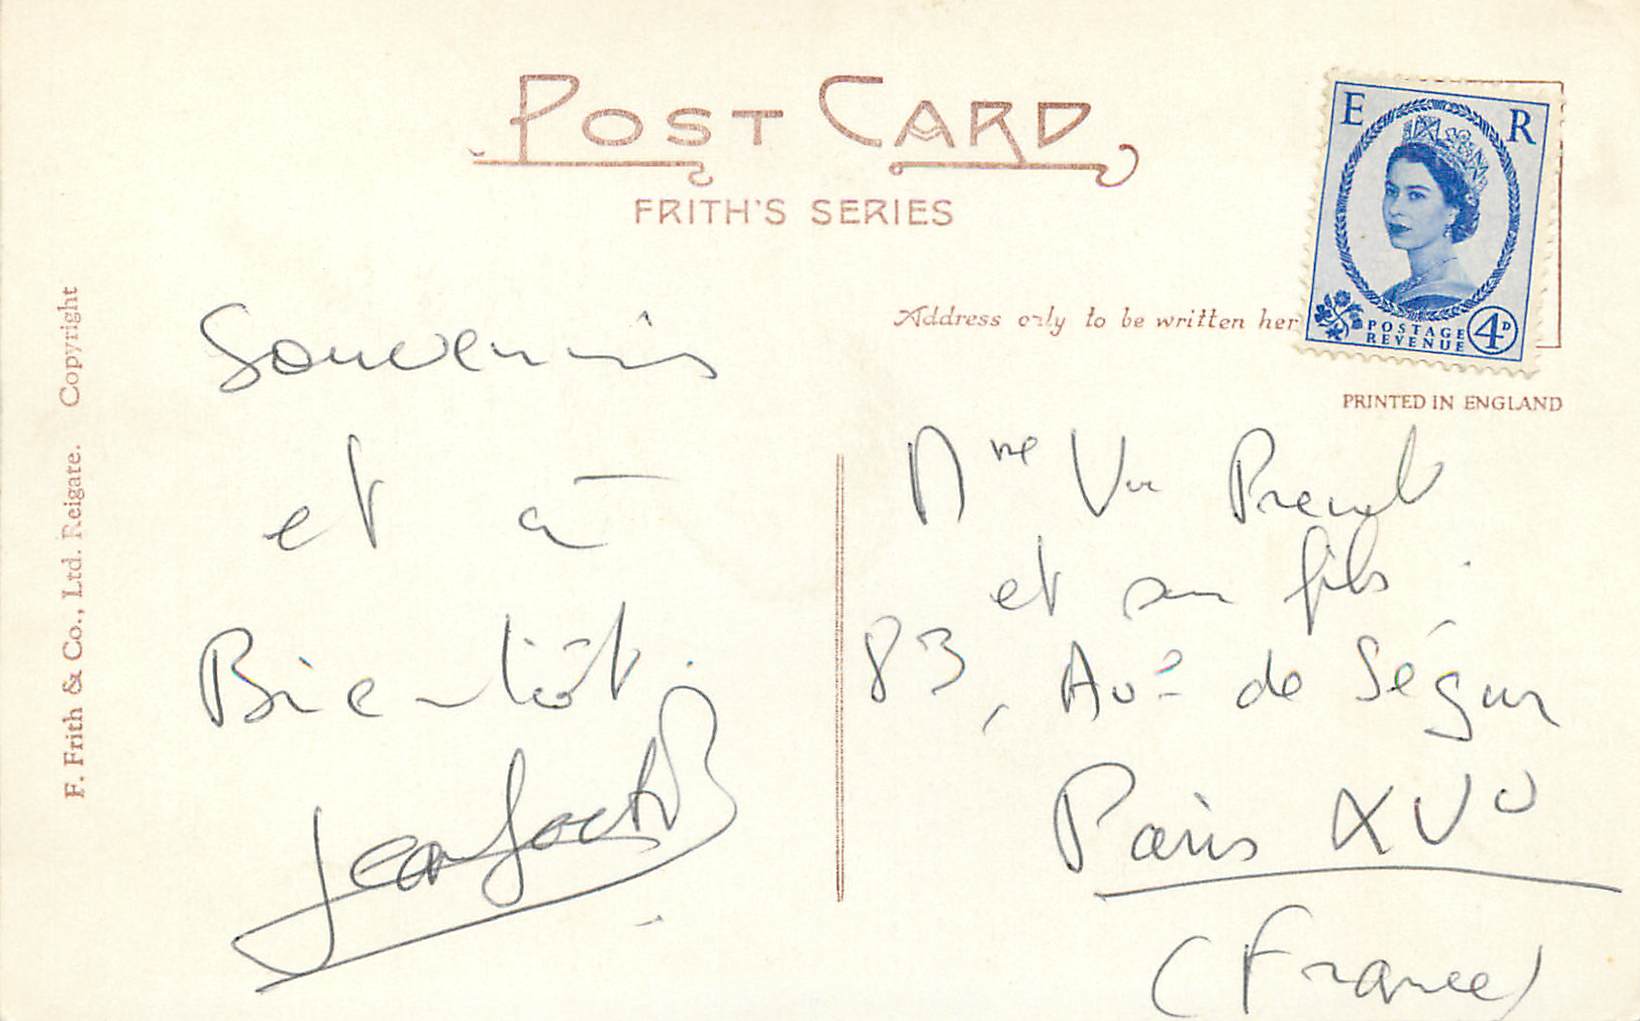 POST CARD
FRITH'S SERIES
F. Frith & Co., Ltd. Reigate. Copyright
E R
POSTAGE
REVENUE
4D
Address only to be written her
PRINTED IN ENGLAND
Souvenirs
et à
Bientôt.
Mme Vve
et son fils.
83, Ave de Ségur
Paris XVe
(France)